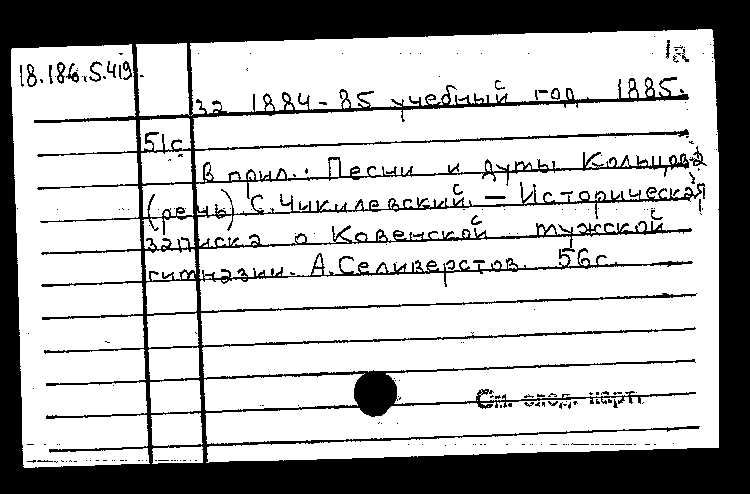 1а
18.186.5.419.
за 1884-85 учебный год. 1885.
51с.
В прил.: Песни и думы Кольцова
(речь). С. Чикилевский. — Историческая
записка о Ковенской мужской
гимназии. А. Селиверстов. 56с.
См. след. карт.